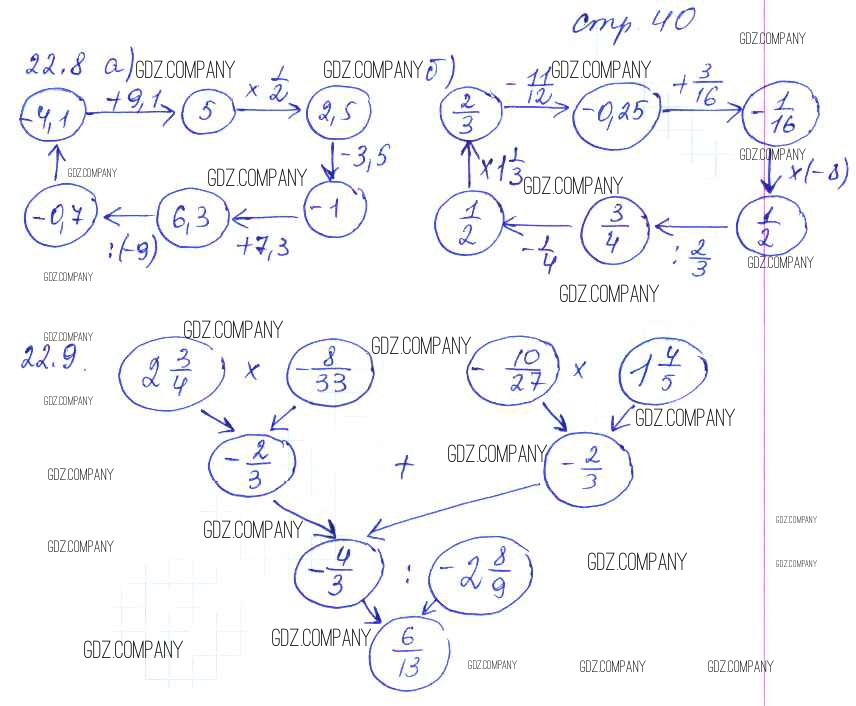 стр. 40
GDZ.COMPANY
22.8 а) GDZ.COMPANY GDZ.COMPANY б) GDZ.COMPANY
-4,1 +9,1 5 × 1/2 2,5
2/3 - 11/12 -0,25 + 3/16 - 1/16
-3,5 GDZ.COMPANY
GDZ.COMPANY GDZ.COMPANY × 1 1/3 GDZ.COMPANY × (-8)
-0,7 6,3 -1
1/2 3/4 1/2
:(-9) +7,3 - 1/4 : 2/3 GDZ.COMPANY
GDZ.COMPANY GDZ.COMPANY
GDZ.COMPANY GDZ.COMPANY GDZ.COMPANY
22.9. 2 3/4 × - 8/33 - 10/27 × 1 4/5
GDZ.COMPANY GDZ.COMPANY
GDZ.COMPANY - 2/3 + GDZ.COMPANY - 2/3
GDZ.COMPANY GDZ.COMPANY
GDZ.COMPANY GDZ.COMPANY GDZ.COMPANY
- 4/3 : -2 8/9
GDZ.COMPANY GDZ.COMPANY 6/13
GDZ.COMPANY GDZ.COMPANY GDZ.COMPANY